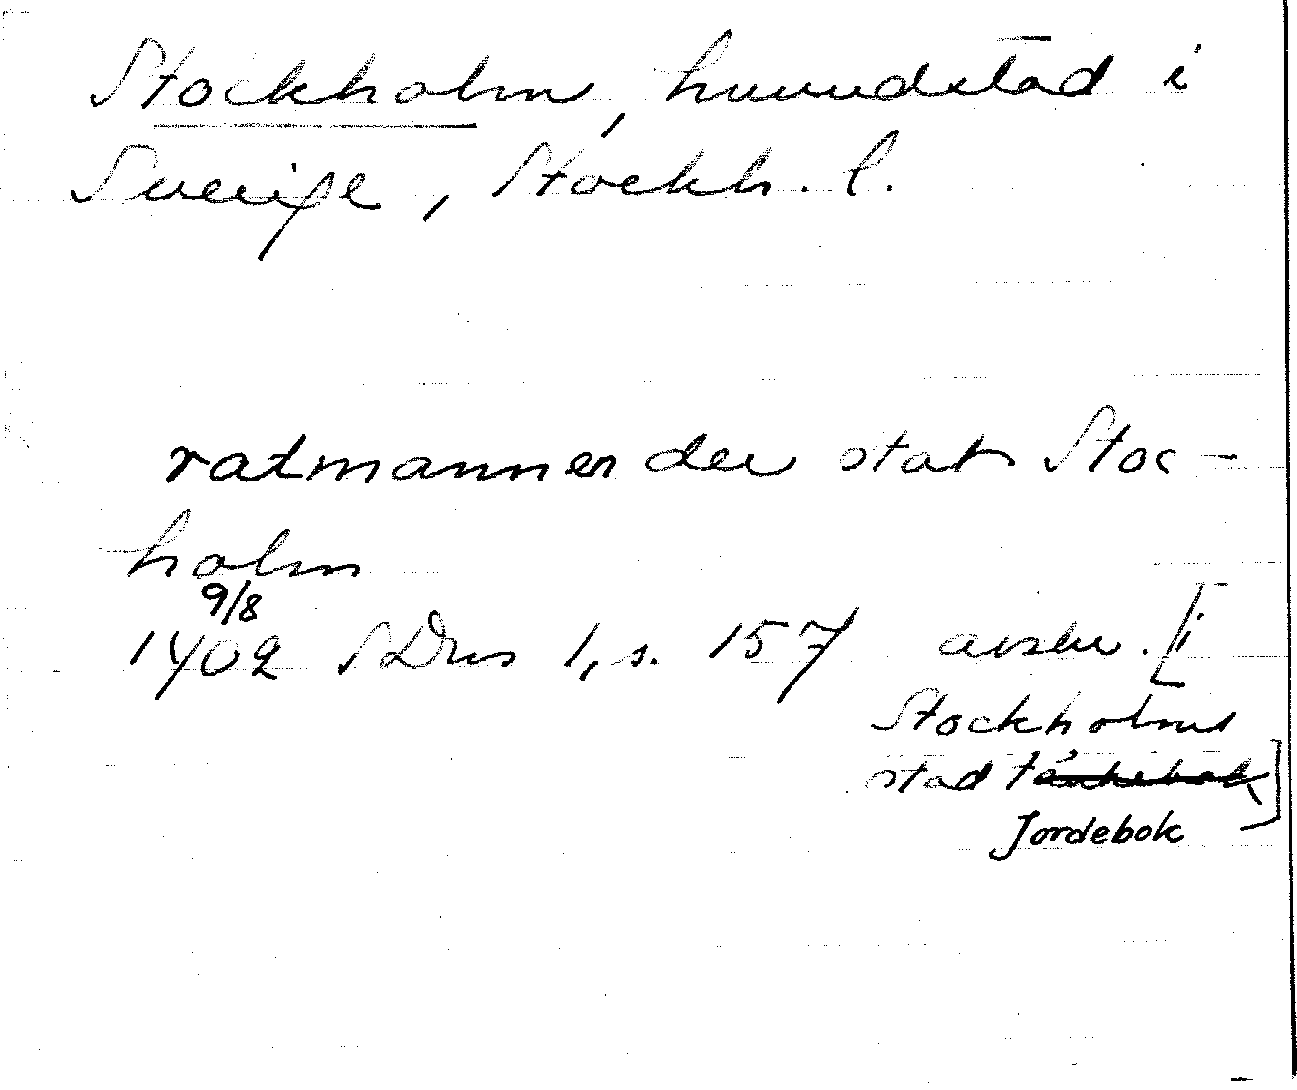 Stockholm, huvudstad i
Sverige, Stockh. l.
ratmannen der stat Stoc-
holm
9/8
1402 SDns 1, s. 157 avskr. [i
Stockholms
stad tänkebok]
Jordebok